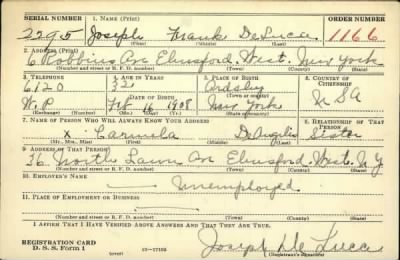 SERIAL NUMBER 1. NAME (Print) ORDER NUMBER
2295 Joseph Frank DeLucca 1166
(First) (Middle) (Last)
2. ADDRESS (Print)
6 Robbins Av Elmsford, West. New York
(Number and street or R. F. D. number) (Town) (County) (State)
3. TELEPHONE 4. AGE IN YEARS 5. PLACE OF BIRTH 6. COUNTRY OF CITIZENSHIP
6120 32 Ardsley
DATE OF BIRTH (Town or county)
W.P. Feb 16 1908 New York U S A
(Exchange) (Number) (Mo.) (Day) (Yr.) (State or country)
7. NAME OF PERSON WHO WILL ALWAYS KNOW YOUR ADDRESS 8. RELATIONSHIP OF THAT PERSON
x Carmela DeAngelis Sister
(Mr., Mrs., Miss) (First) (Middle) (Last)
9. ADDRESS OF THAT PERSON
36 North Lawn Av Elmsford. West. N Y
(Number and street or R. F. D. number) (Town) (County) (State)
10. EMPLOYER'S NAME
Unemployed
11. PLACE OF EMPLOYMENT OR BUSINESS
(Number and street or R. F. D. number) (Town) (County) (State)
I AFFIRM THAT I HAVE VERIFIED ABOVE ANSWERS AND THAT THEY ARE TRUE.
REGISTRATION CARD
D. S. S. Form 1 (over) Joseph De Lucca
(Registrant's signature)